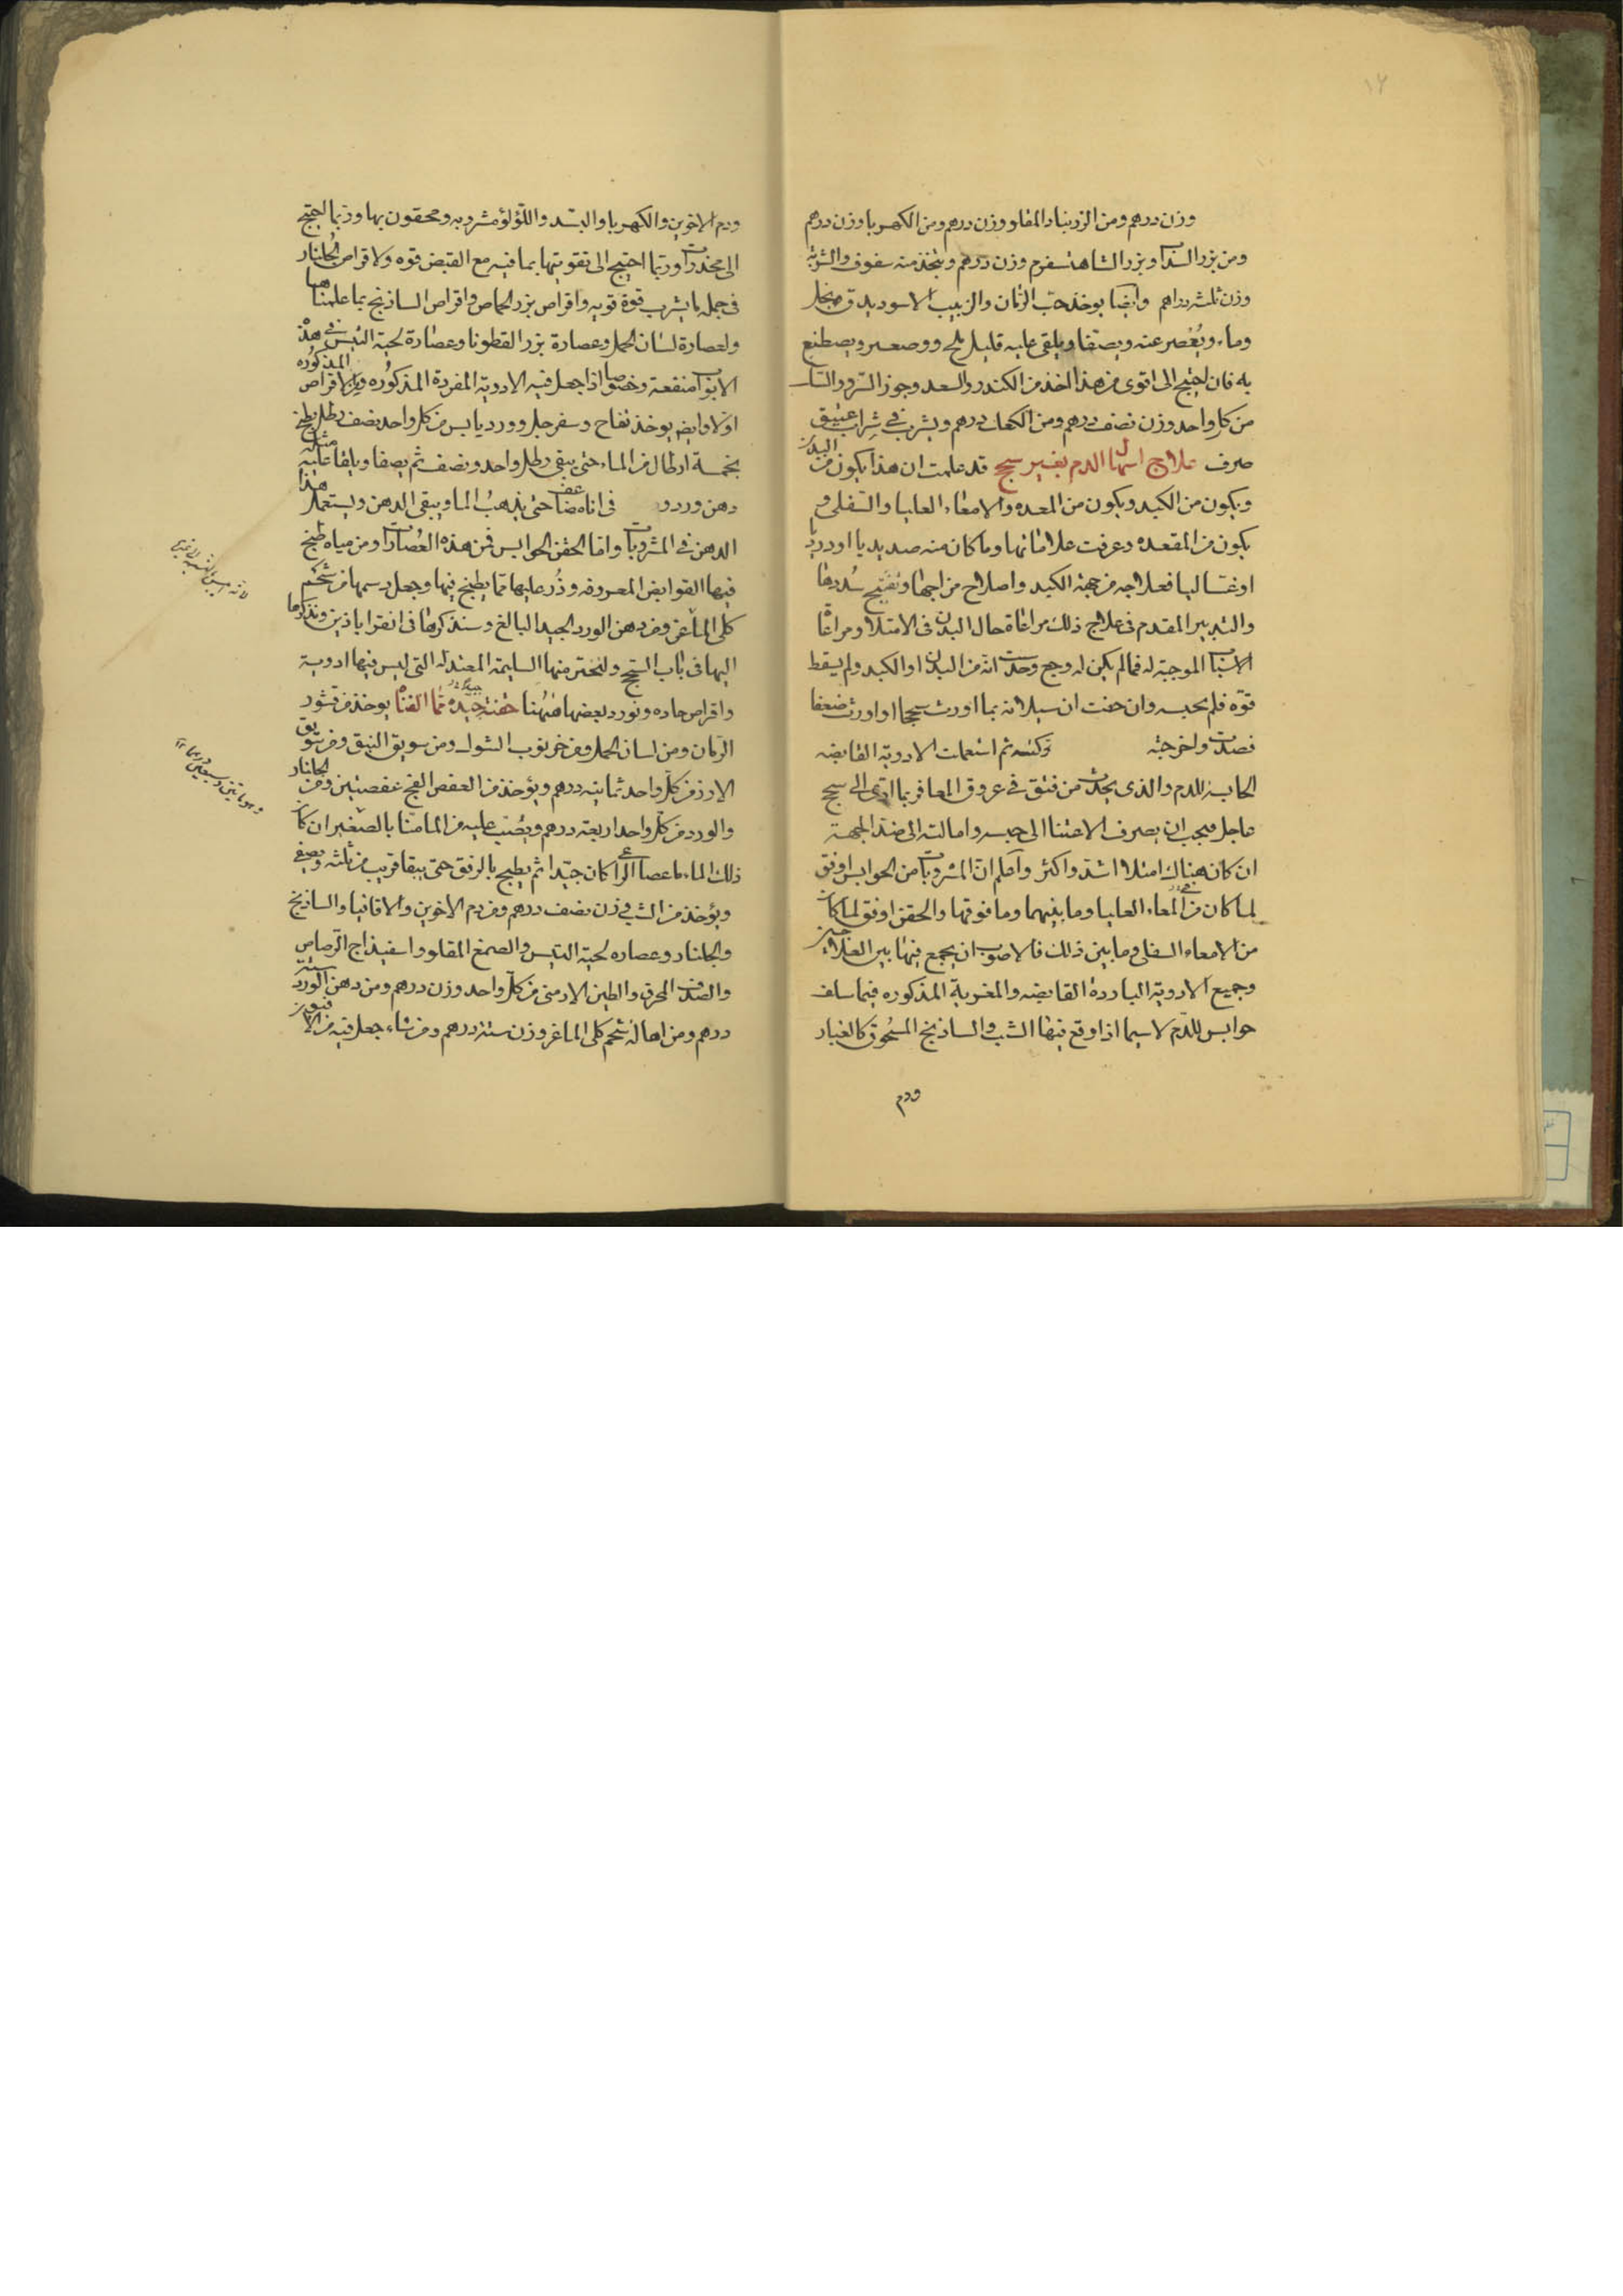 ١٢
وزن درهم ومن الزرنباد المقلو وزن درهم ومن الكهربا وزن درهم
ومن بزر السذاب وبزر الشاهسفرم وزن درهم ويتخذ منه سفوف والشربة
وزن ثلثه دراهم وايضا يوخذ حب الرمان والزبيب الاسود يدق بخل
وماء ويعصر عنه ويصفا ويلقى عليه قليل ملح وصعتر ويصطبغ
به فان احتيج الى اقوى من هذا اخذ من الكندر والسعد وجوز السرو والسك
من كل واحد وزن نصف درهم ومن الكهربا درهم ويشرب في شراب عتيق
صرف علاج اسهال الدم بغير سحج قد علمت ان هذا يكون من البدن
ويكون من الكبد ويكون من المعده والامعاء العليا والسفلى و
يكون من المقعده وعرفت علاماتها وما كان منه صديديا او دردياً
او غساليا فعلاجه من جهة الكبد واصلاح مزاجها وتفتيح سددها
والتدبير المقدم في علاج ذلك مراعاة حال البدن في الامتلا ومراعاة
الاسباب الموجبة له فما لم يكن له وجع وحدست انه من البدن او الكبد ولم يسقط
قوة فلم يحبسه وان خفت ان سيلانه بما اورث سحجا او اورث ضعفا
فصدت واخرجته وكنته ثم استعملت الادوية القابضه
الحابسة للدم والذى يحدث من فتق في عروق المعا فربما ادى الى سحج
عاجل فيجب ان يصرف الاعتنا الى حبسه وامالته الى ضد الجهة
ان كان هناك امتلا اشد واكثر واعلم ان المشروبات من الحوابس اوفق
لما كان في المعاء العليا وما بينهما وما فوقها والحقن اوفق لما كان
من الامعاء السفلى وما بين ذلك فالاصوب ان يجمع فيها بين العلاجين
وجميع الادوية الباردة القابضه والمغرية المذكوره فيما سلف
حوابس للدم لا سيما اذا وقع فيها الشب والساذنج المسحوق كالغبار
ودم
ودم الاخوين والكهربا والبسد واللؤلؤ مشروبه ومحقون بها وربما احتيج
الى مخدرات وربما احتيج الى تقويتها بما فيه مع القبض قوه ولاقراص الجلنار
في جمله ما يشرب قوة قويه واقراص بزر الحماص واقراص الساذنج بما علمناها
ولعصارة لسان الحمل وعصارة بزر القطونا وعصارة لحية التيس في هذه
الابواب منفعة وخصوصا اذا جعل فيه الادوية المفردة المذكوره والاقراص المذكوره
اولا وايضا يوخذ تفاح وسفرجل وورد يابس من كل واحد نصف رطل يطبخ
بخمسة ارطال من الماء حتى يبقى رطل واحد ونصف ثم يصفا ويلقا عليه مثله
دهن ورد و في اناء مضاعف حتى يذهب الما ويبقى الدهن ويستعمل هذا
الدهن في المشروبات واما الحقن الحوابس فمن هذه العصارات ومن مياه طبخ
فيها القوابض المعروفه وذر عليها مما يطبخ فيها وجعل دسمها من شحم
كلى الماعز ومن دهن الورد الجيد البالغ وسنذكرها في اقراباذين ونذكرها
اليها في باب السحج ولنختر منها السليمة المعتدله التى ليس فيها ادوية
واقراص حاده ونورد بعضها ههنا حقنة جيدة مما الفناه يوخذ من قشور
الرمان ومن لسان الحمل ومن خرنوب الشوك ومن سويق النبق ومن سويق
الارز من كل واحد ثمانيه درهم ويؤخذ من العفص الفج عفصتين ومن الجلنار
والورد من كل واحد اربعة درهم ويصب عليه من الما منا بالصغير ان كان
ذلك الماء ماء عصا الراعى كان جيدا ثم يطبخ بالرفق حتى يبقا قريب من ثلثه ويصفى
ويؤخذ من الشب وزن نصف درهم ومن دم الاخوين والاقاقيا والساذنج
والجلنار وعصاره لحية التيس والصمغ المقلو واسفيذاج الرصاص
والصدف المحرق والطين الارمنى من كل واحد وزن درهم ومن دهن الورد ستة
درهم ومن اهالة شحم كلى الماعز وزن ستة درهم ومن شاء جعل فيه من الافيون